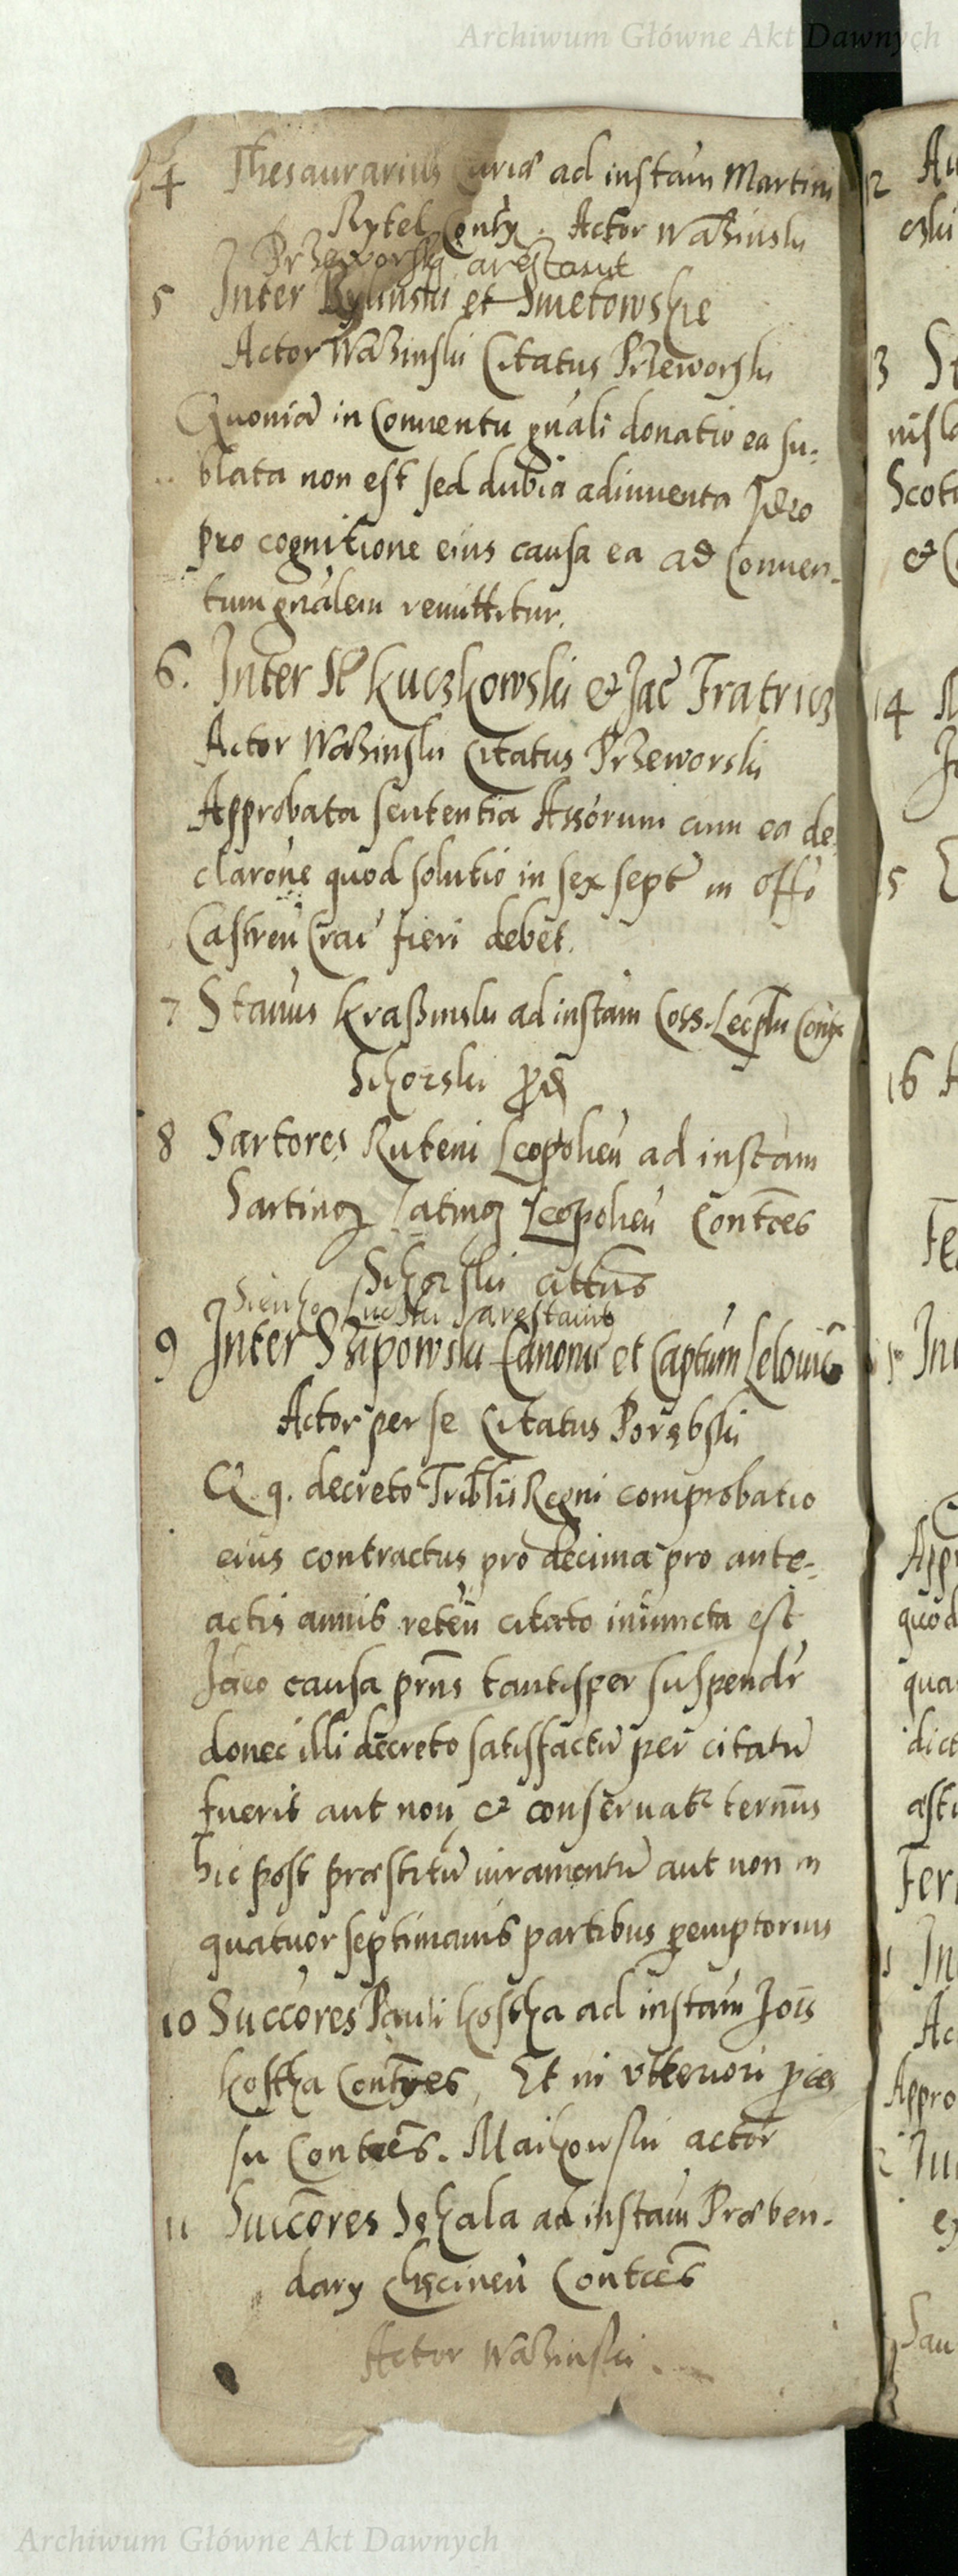 Archiwum Główne Akt Dawnych
4 Thesaurarius Curiæ ad instam Martini
Rytel Contx. Actor Waszinski
Przeworski arestant
5 Inter Bylinski et Smetowskie
Actor Waszinski Citatus Przeworski
Quonia in Conuentu gnali donatio ea su-
blata non est sed dubia adinuenta Ideo
pro cognitione eius causa ea ad Conuen-
tum gnalem remittitur.
6. Inter St Kuczkowski et Jac Fratrics
Actor Waszinski Citatus Przeworski
Approbata sententia Assorum cum ea de
clarone quod solutio in sex sept in offo
Castren Crac fieri debet.
7 Stanus Kraßinski ad instam Coss. Leopln Contx
Sikorski
8 Sartores Ruteni Leopolien ad instam
Leopolien Contces
Sikorski
arestant
9 Inter Canonic et Captum Lelouic
Actor per se Citatus Porębski
Q. q. decreto Triblis Regni comprobatio
eius contractus pro decima pro ante-
actis annis reten citato iniuncta est
Ideo causa prns tantisper suspendr
donec illi decreto satisfactu per citatu
fuerit aut non, et conseruatr ternus
hic post præstitu iuramentu aut non in
quatuor septimanis partibus pemptorius
10 Succores Pauli Kostka ad instam Jois
Kostka Contxes, Et in vlteriori pces
su Contces. Maikowski actor
11 Succores Sękala ad instam Præben-
dary Contces
Actor Waszinski.
12
13 St
Scot
14
15
16
Appr
quod
qua
dict
Fer
In
Ac
Appro
Archiwum Główne Akt Dawnych